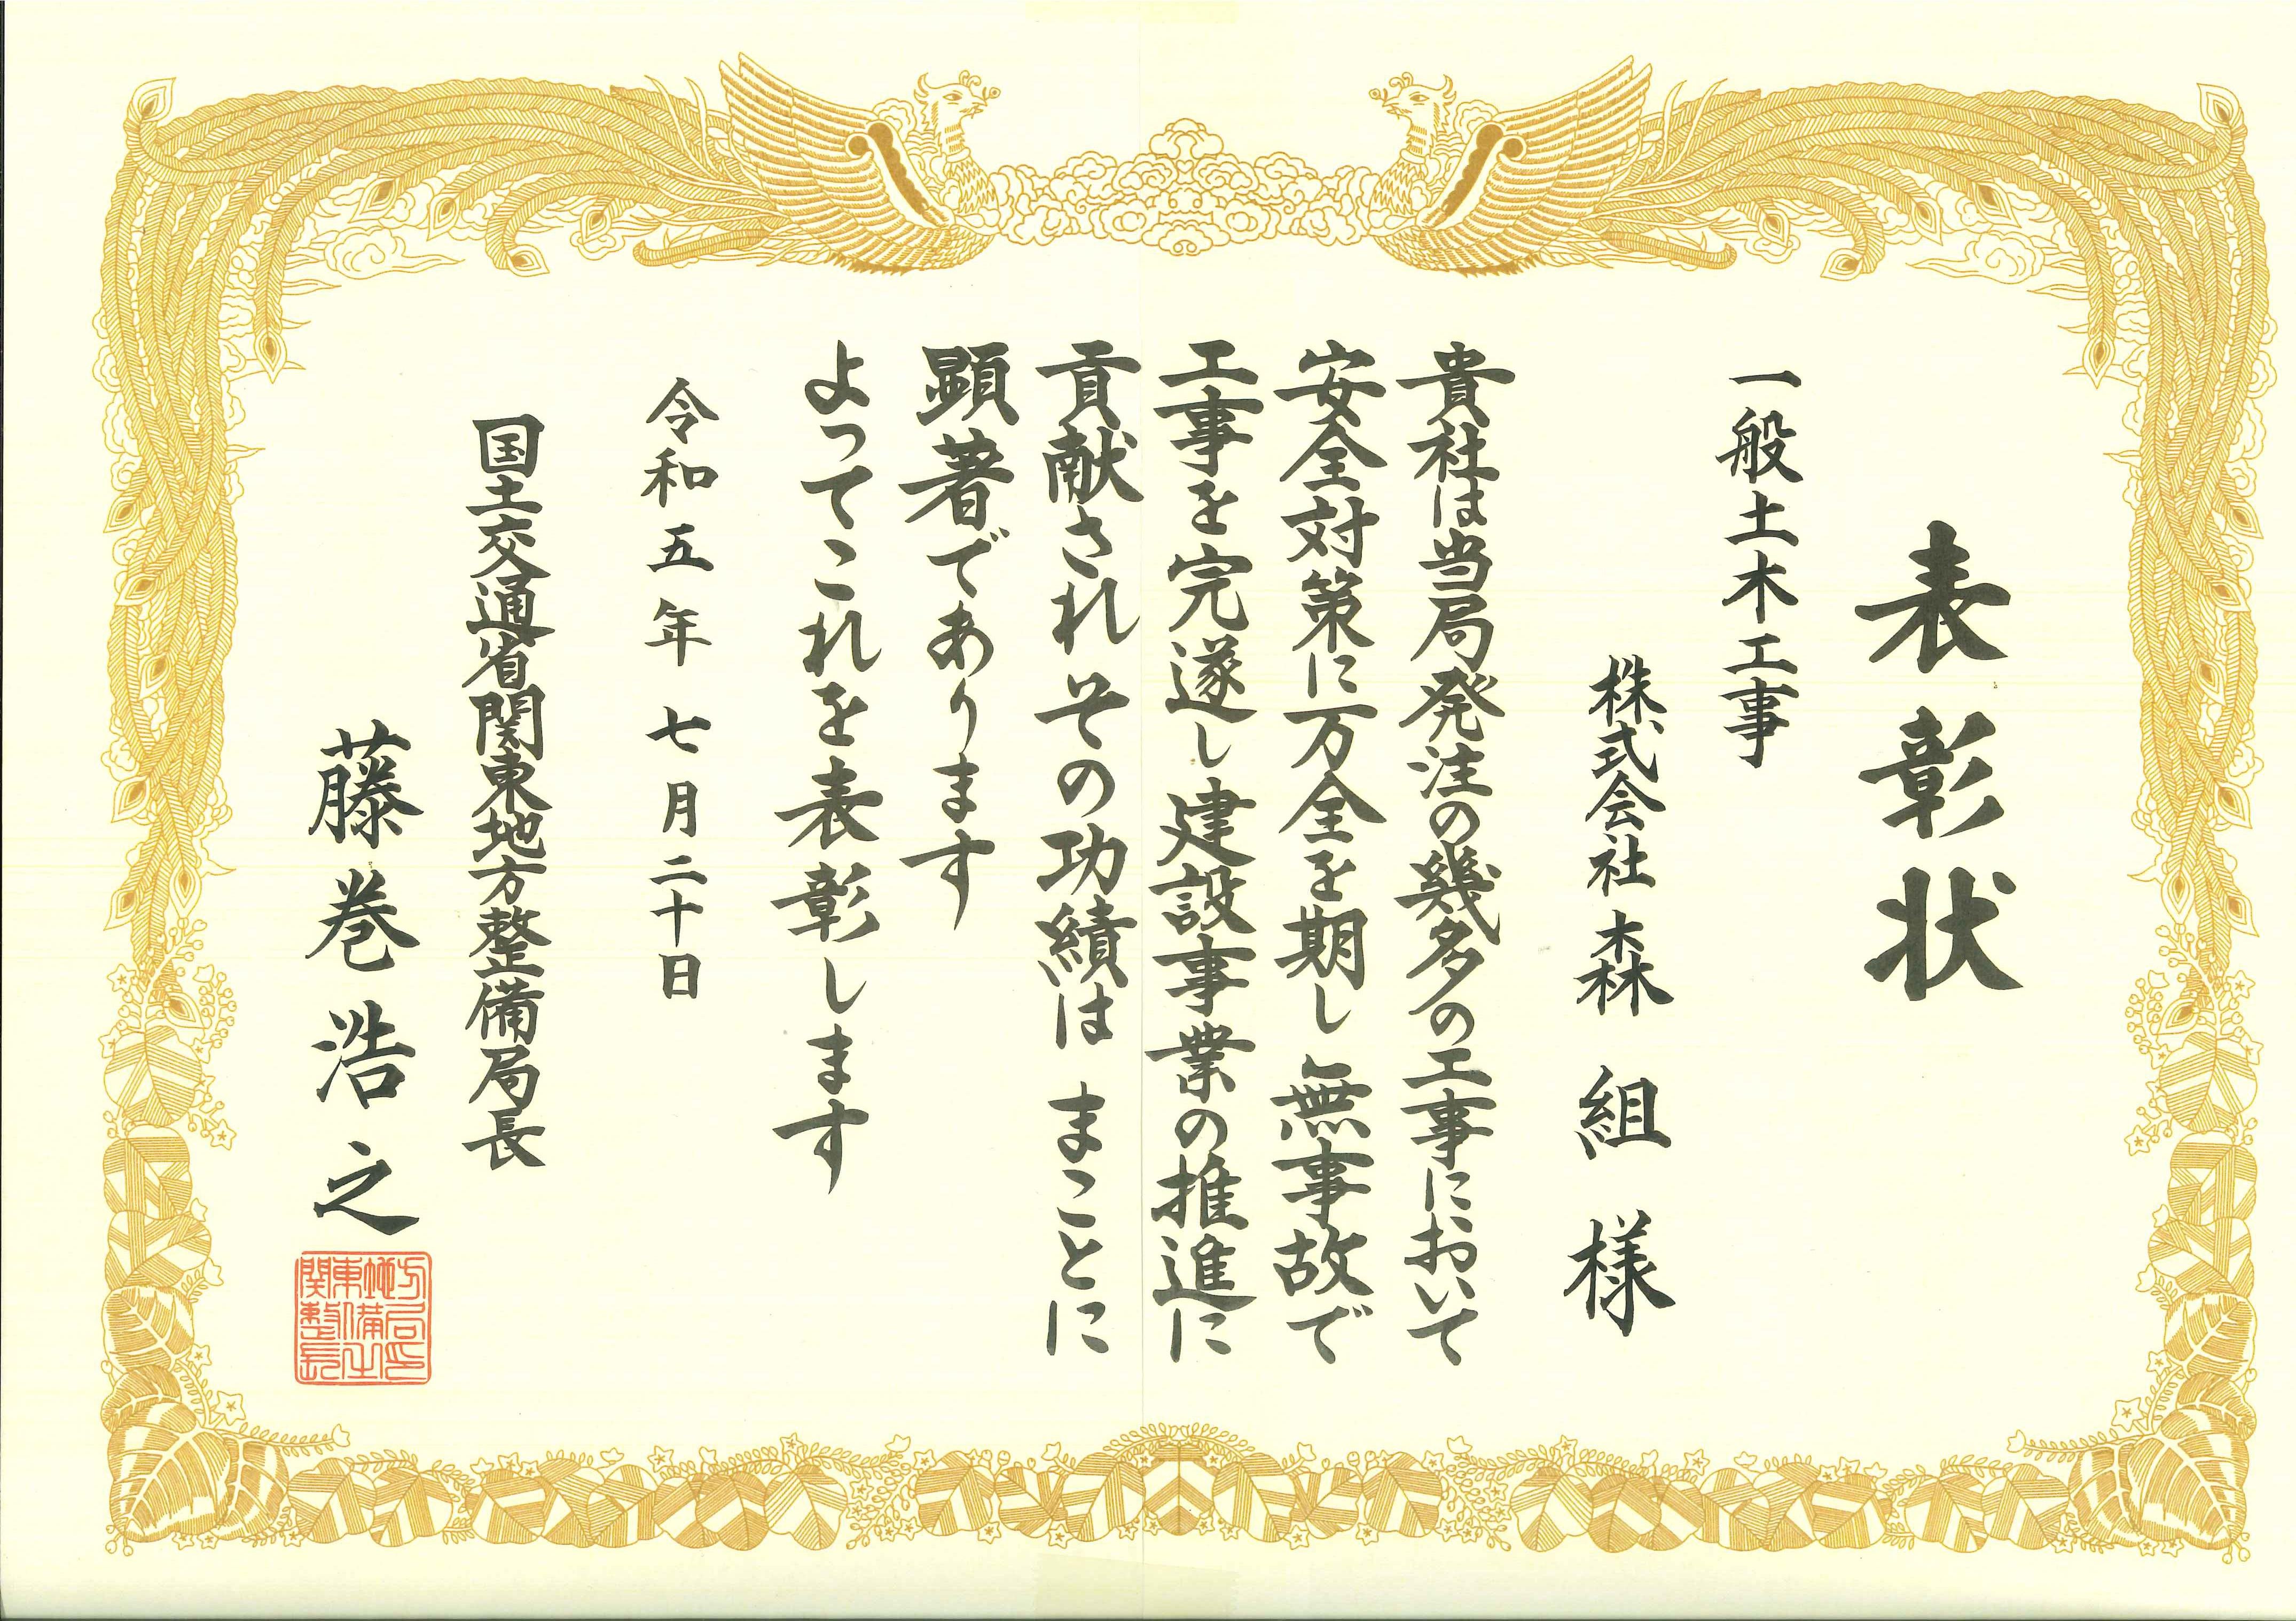 表彰状
一般土木工事
株式会社 森組 様
貴社は当局発注の幾多の工事において
安全対策に万全を期し 無事故で
工事を完遂し 建設事業の推進に
貢献され その功績は まことに
顕著であります
よってこれを表彰します
令和五年七月二十日
国土交通省関東地方整備局長
藤巻浩之
関東地方
整備局
長之印